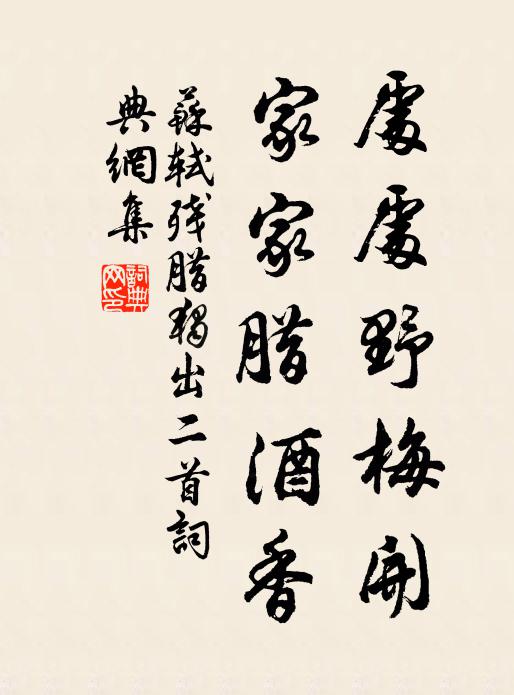 處處野梅開
家家腊酒香
蘇軾残腊獨出二首詞
典網集
詞典网印